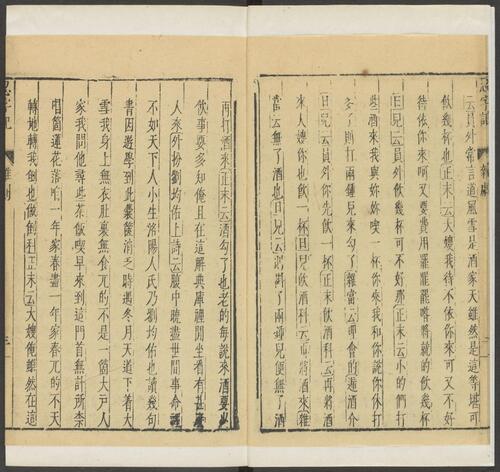 忍字記 雜劇 二
云員外常言道風雪是酒家天雖然是這等堪可
飲幾杯也正末云大嫂我待不依你來可又不好
待依你來呵又要費用罷罷罷喒將就的飲幾杯
旦兒云員外飲幾杯可不好那正末云小的們打
些酒來我與妳妳喫一杯你來我和你說你休打
多了則打兩鍾兒來勾了雜當云理會的遞酒介
旦兒云員外你先飲一杯正末飲酒科云再將酒
來大嫂你也飲一杯旦兒飲酒科云再將酒來雜
當云無了酒也旦兒云則斟了兩鍾兒便無了酒
再打酒來正末云酒勾了也老的每說來酒要少
飲事要多知俺且在這解典庫裡閒坐看有甚麼
人來外扮劉均佑上詩云腹中曉盡世間事命裡
不如天下人小生洛陽人氏乃劉均佑也讀幾句
書因遊學到此囊篋消乏時遇冬月天道下着大
雪我身上無衣肚裏無食兀的不是一箇大戶人
家我問他尋些茶飯喫早來到這門首無計所柰
唱箇蓮花落咱一年家春盡一年家春兀的不天
轉地轉我倒也做倒科正末云大嫂俺雖然在這
忍字記 雜劇 三